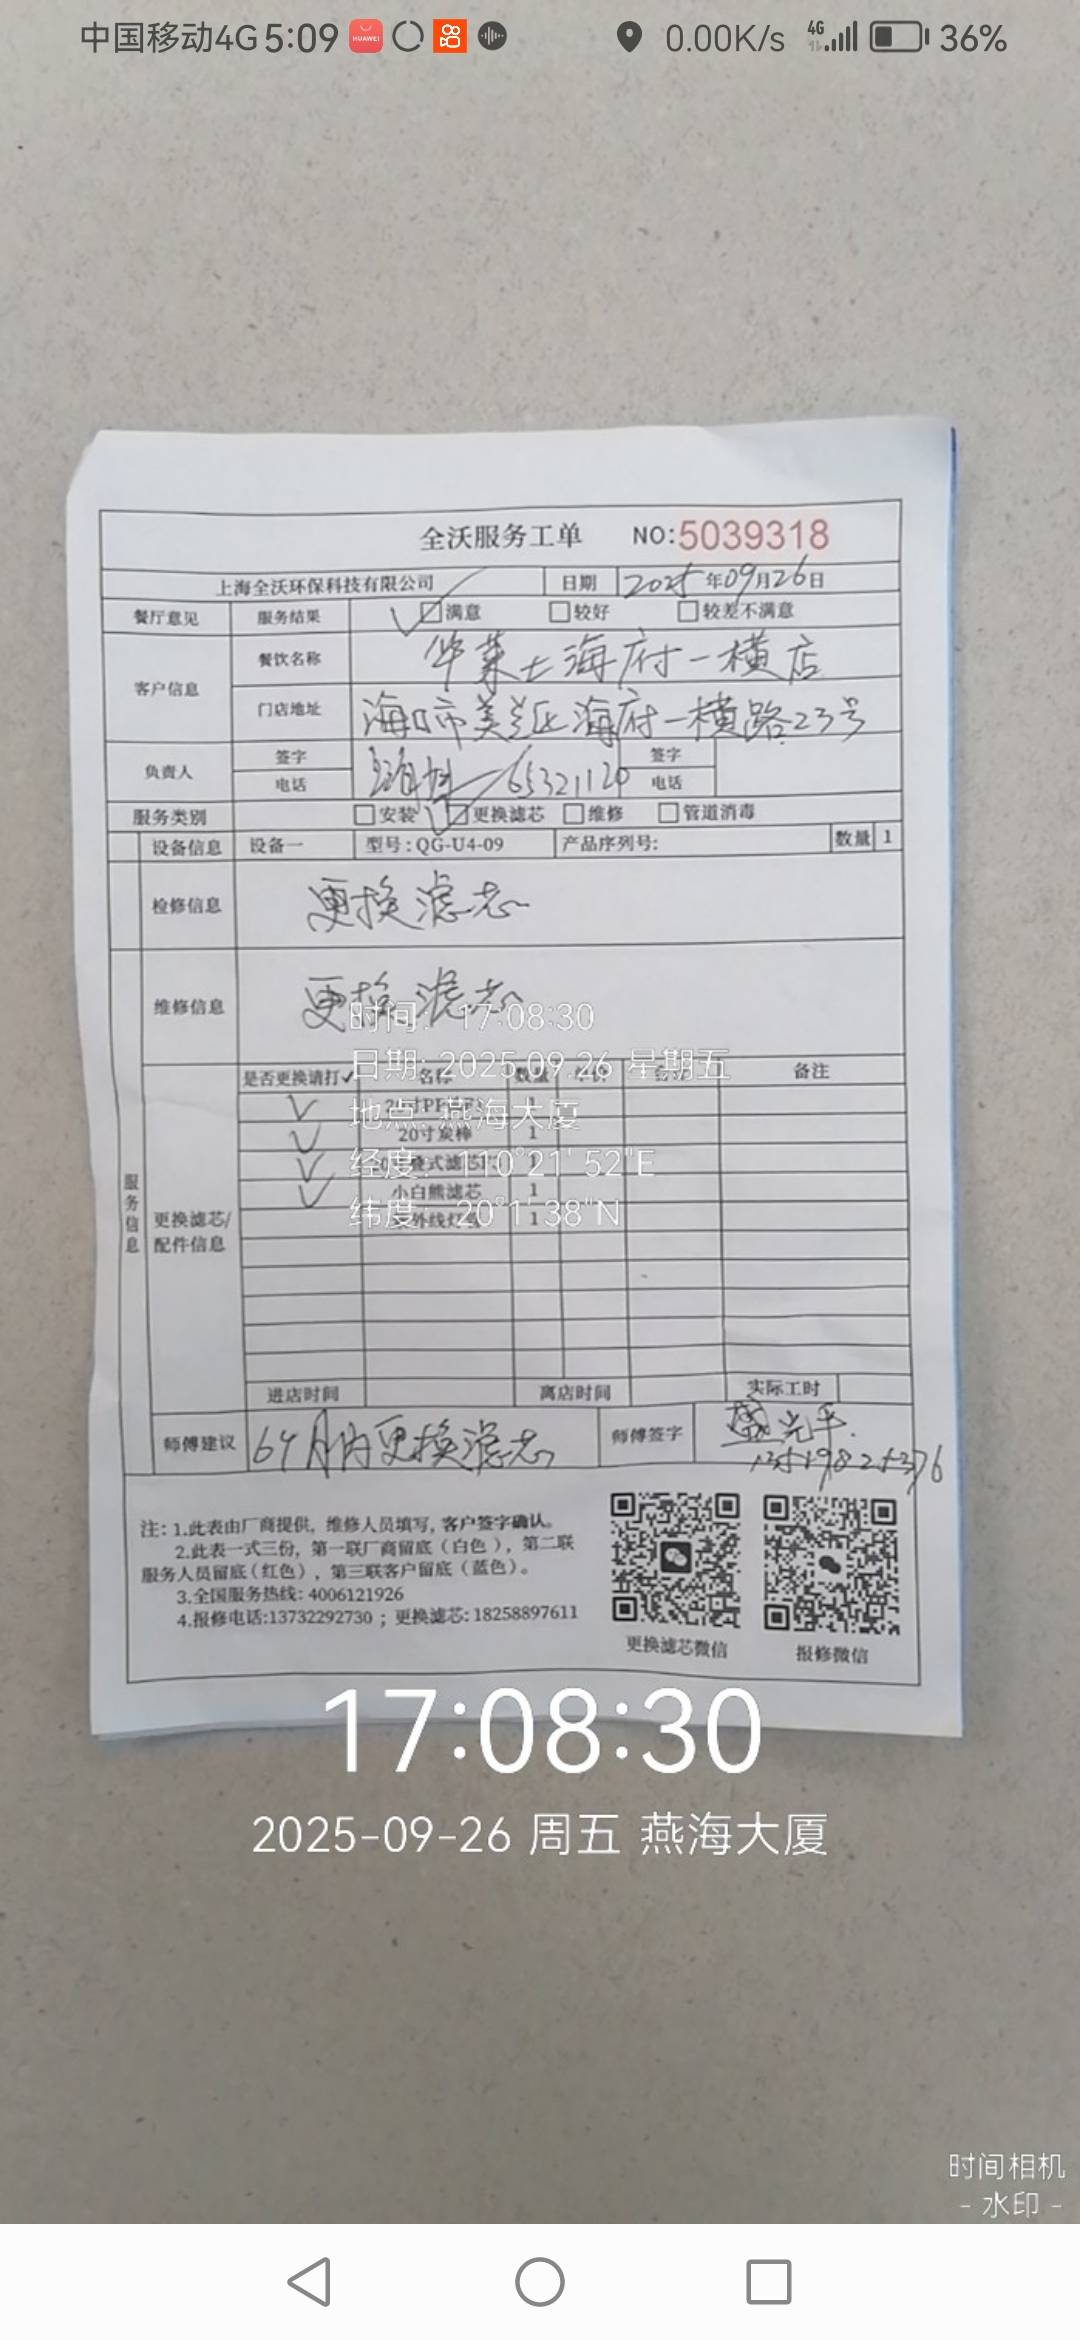 中国移动4G 5:09 HUAWEI 0.00K/s 4G 36%
全沃服务工单 NO:5039318
上海全沃环保科技有限公司 日期 2025年09月26日
餐厅意见 服务结果 满意 较好 较差不满意
客户信息 餐饮名称 华莱士海府一横店
门店地址 海口市美兰区海府一横路23号
负责人 签字 签字
电话 65321120 电话
服务类别 安装 更换滤芯 维修 管道消毒
设备信息 设备一 型号:QG-U4-09 产品序列号: 数量 1
检修信息 更换滤芯
维修信息 更换滤芯
时间: 17:08:30
日期: 2025.09.26 星期五
地点: 燕海大厦
经度: 110°21'52"E
纬度: 20°1'38"N
是否更换请打✓ 名称 数量 单价 备注
20寸PP 1
20寸炭棒 1
叠式滤芯 1
小白熊滤芯 1
外线灯 1
服务信息
更换滤芯/
配件信息
进店时间 离店时间 实际工时
师傅建议 6个月内更换滤芯 师傅签字 盛光平
注: 1.此表由厂商提供, 维修人员填写, 客户签字确认。
2.此表一式三份, 第一联厂商留底(白色), 第二联
服务人员留底(红色), 第三联客户留底(蓝色)。
3.全国服务热线: 4006121926
4.报修电话:13732292730 ; 更换滤芯: 18258897611
更换滤芯微信 报修微信
17:08:30
2025-09-26 周五 燕海大厦
时间相机
- 水印 -